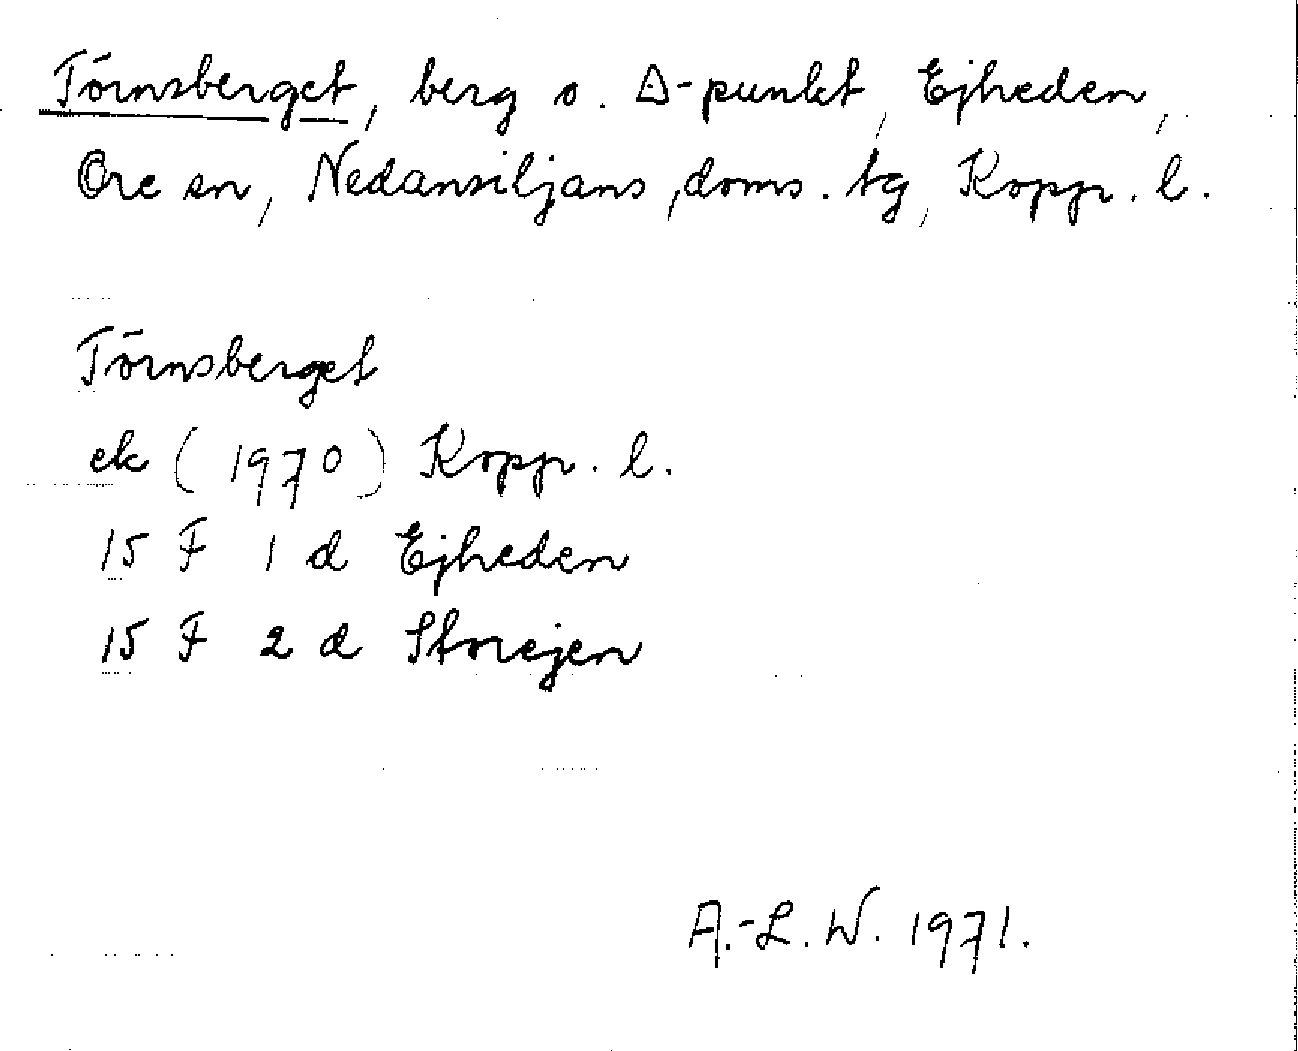 Törnsberget, berg o. Δ-punkt, Ejheden,
Ore sn, Nedansiljans doms. tg, Kopp. l.
Törnsberget
ek (1970) Kopp. l.
15 F 1 d Ejheden
15 F 2 d Storejen
A.-L. W. 1971.